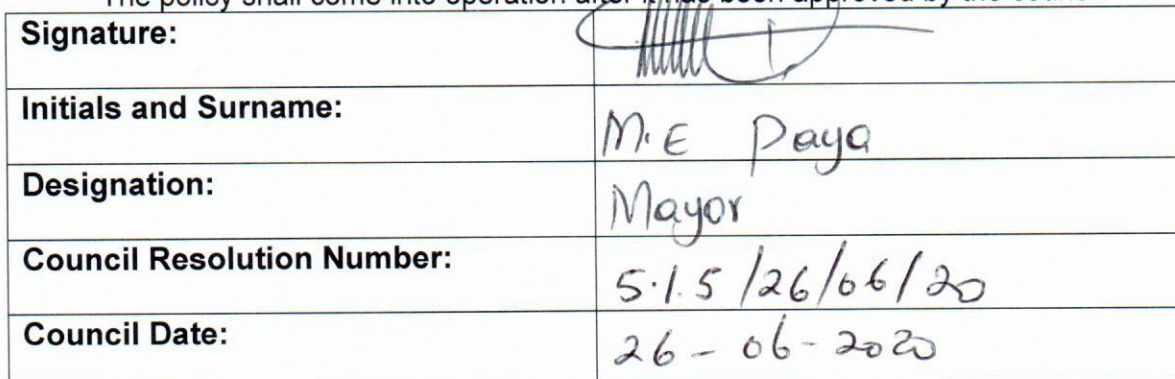 The policy shall come into operation after it has been approved by the council
Signature:
Initials and Surname: M.E Paya
Designation: Mayor
Council Resolution Number: 5.1.5/26/06/20
Council Date: 26-06-2020